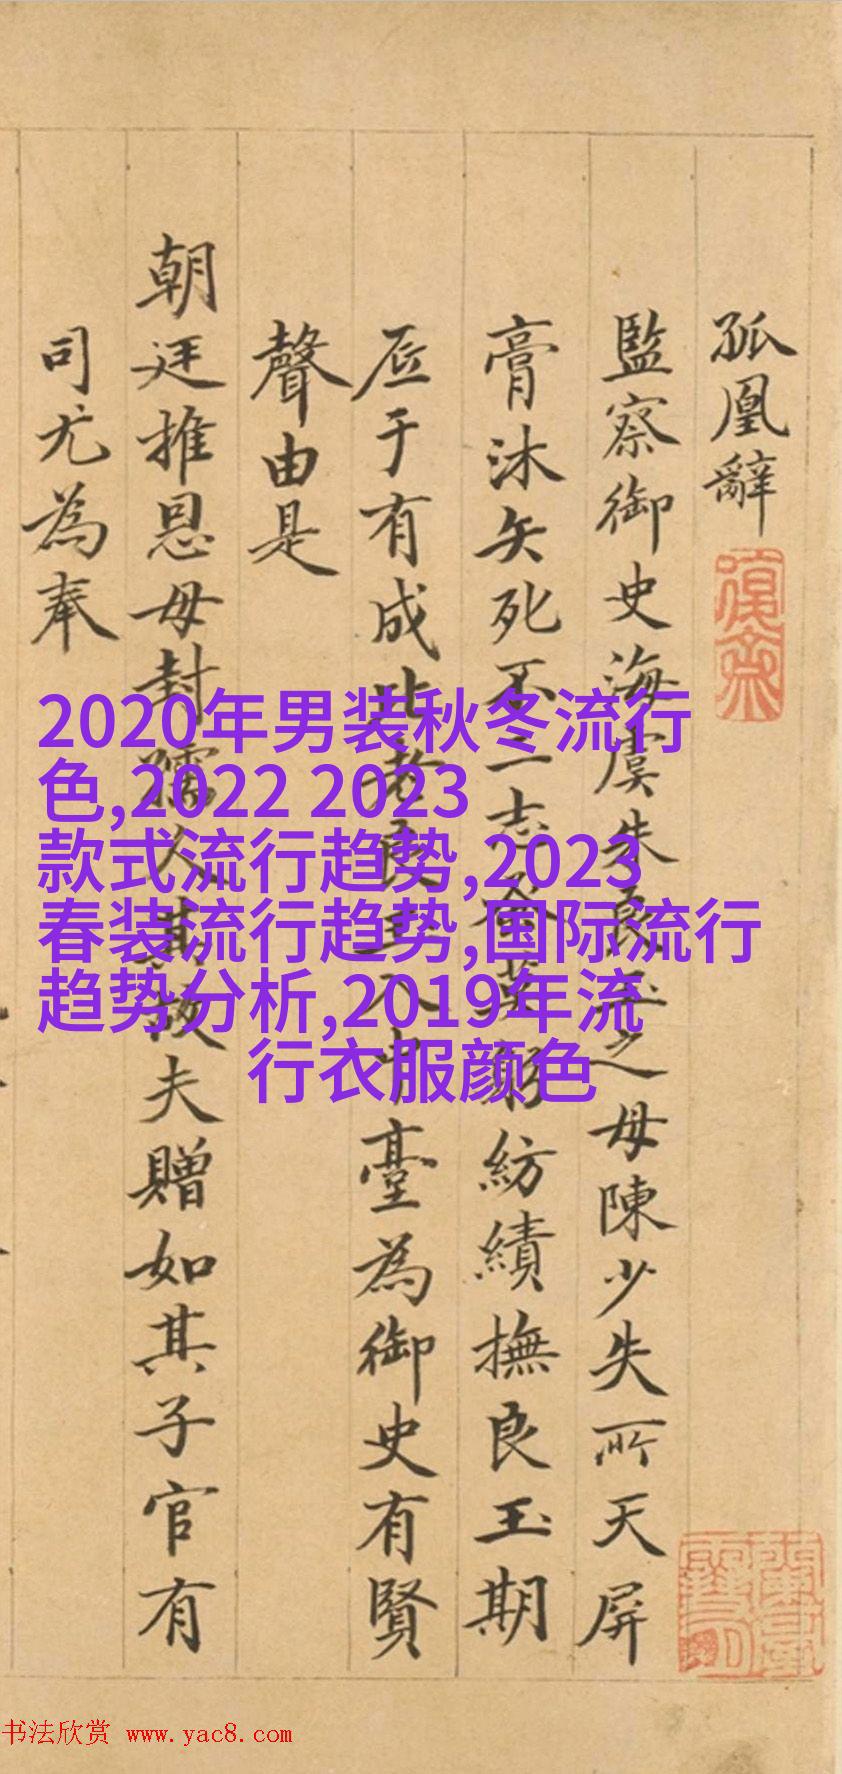 孤凰辭
復齋
監察御史海虞朱良玉之母陳少失所天屏
膏沐矢死不二志躬紡績撫良玉期
厎于有成比者良玉入中臺為御史有賢
聲由是
朝廷推恩母封孺人其故夫贈如其子官有
司尤為奉
2020年男装秋冬流行
色,2022 2023
款式流行趋势,2023
春装流行趋势,国际流行
趋势分析,2019年流
行衣服颜色
书法欣赏 www.yac8.com